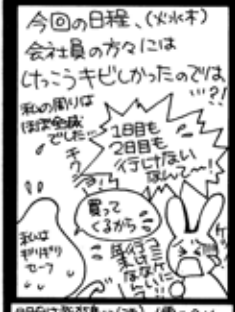 今回の日程、(火水木)
会社員の方々には
けっこうキビしかったのでは
…?!
私の周りは
ほぼ全滅
でした…
1日目も
2日目も
行けない
なんて〜!
買って
くるから
私は
ギリギリ
セーフ